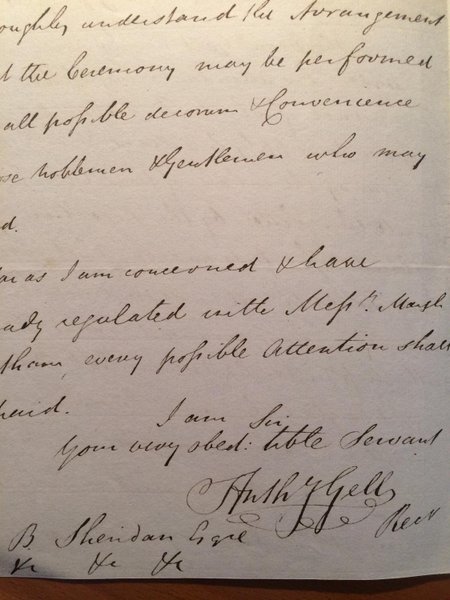 oughly understand the Arrangement
t the Ceremony may be performed
all possible decorum & Convenience
ose noblemen & Gentlemen who may
d.
far as I am concerned & have
eady regulated with Messrs.
tham, every possible Attention shall
paid.
I am Sir
Your very obed: hble Servant
Anthy Gell
Recr
B. Sheridan Esqre
&c &c &c